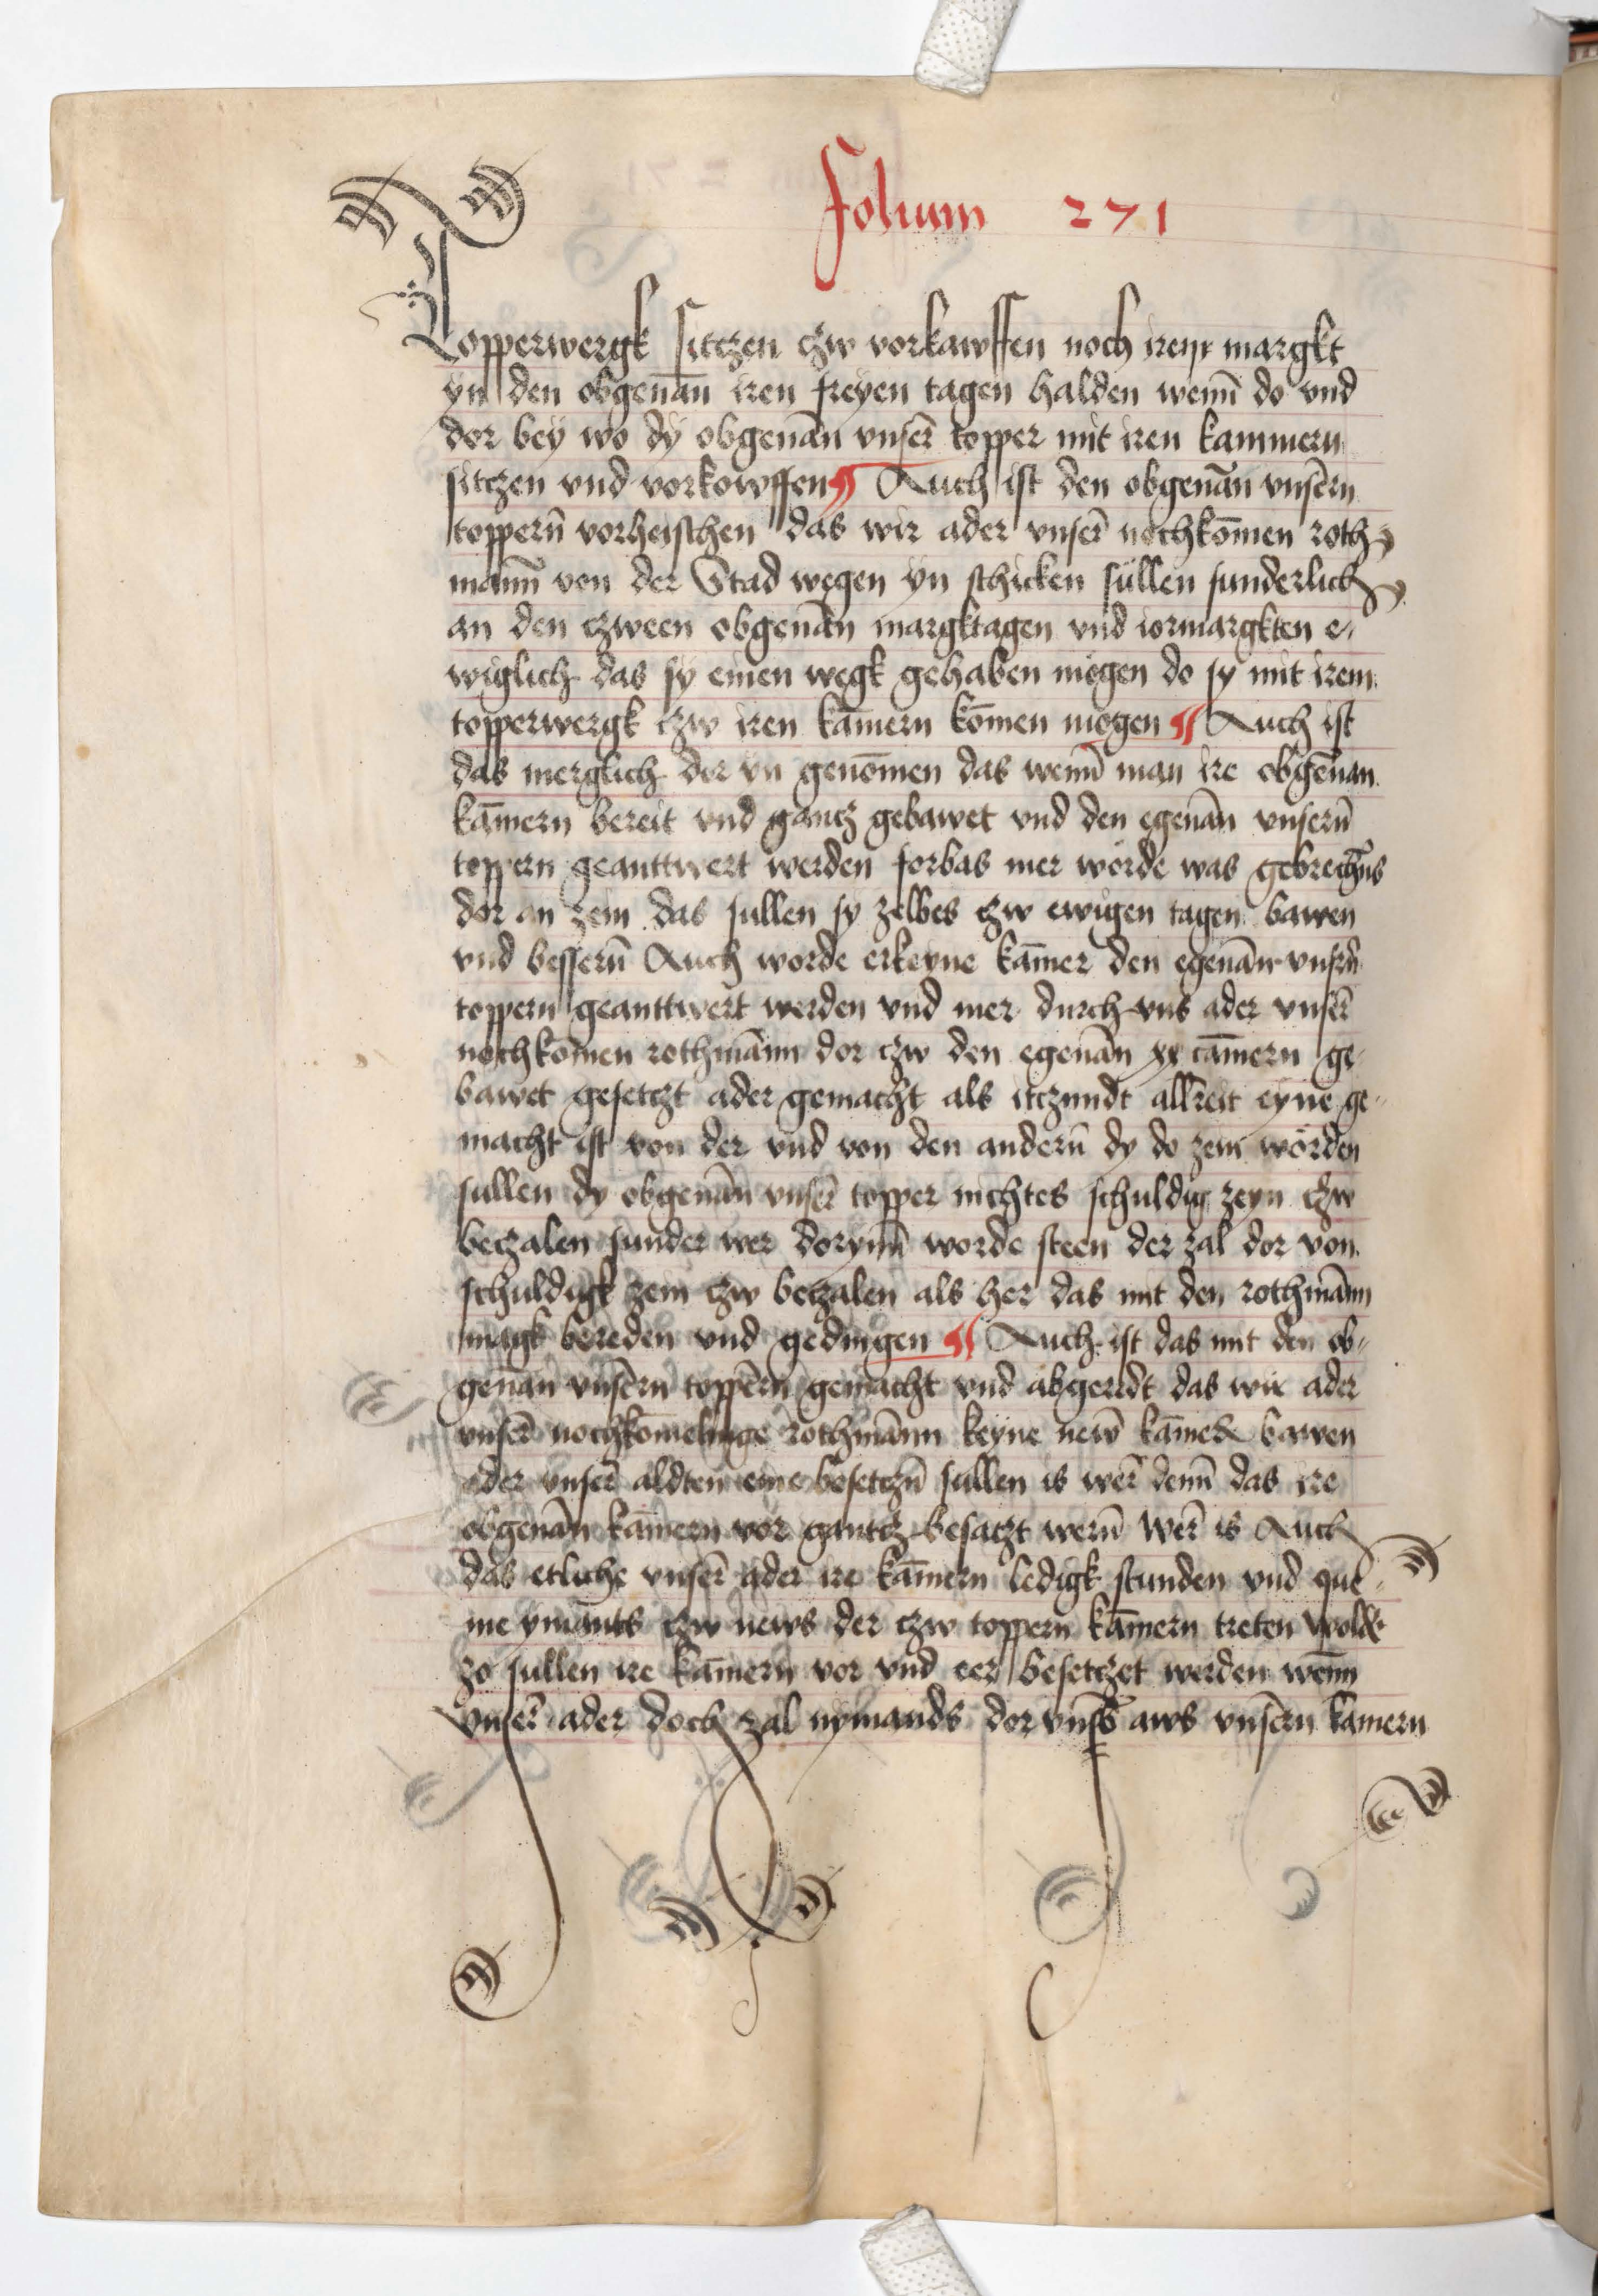 Folium 271
Topperwergk sitczen czw vorkawffen noch irem margkt
yn den obgenān iren freyen tagen halden wenn̄ do vnd
dor bey wo dy obgenān vnser̄ topper mit iren kammern
sitczen vnd vorkowffen ¶ Auch ist den obgenān vnsern̄
toppern̄ vorheischen das wir ader vnser̄ nochkom̄en roth
mann̄ von der Stad wegen yn schicken süllen sunderlich
an den czween obgenān margktagen vnd iormargkten e-
wiglich das sy einen wegk gehaben mögen do sy mit irem
topperwergk czw iren kam̄ern kom̄en mögen ¶ Auch ist
das merglich dor yn genom̄en das wenn̄ man ire obgenān
kam̄ern bereit vnd gantcz gebawet vnd den egenān vnsern̄
toppern geanttwert werden forbas mer wörde was gebrechn̄s
dor an zein das sullen sy zelbes czw ewigen tagen bawen
vnd bessern̄ Auch worde erkeyne kam̄er den egenān vnsrn̄
toppern geanttwert werden vnd mer durch vns ader vnser̄
nochkom̄en rothmān̄n dor czw den egenān xx cam̄ern ge-
bawet gesetczt ader gemacht als itczundt allreit eyne ge-
macht ist von der vnd von den andern̄ dy do zein wörden
sullen dy obgenān vnser̄ topper nichtes schuldig zeyn czw
beczalen sunder wer dorynn̄ worde steen der zal dor von
schuldigk zein czw beczalen als her das mit den rothmān̄n
magk bereden vnd gedingen ¶ Auch ist das mit den ob-
genān vnsern̄ toppern̄ gemacht vnd abgeredt das wir ader
vnser̄ nochkom̄elinge rothmān̄n keyne new̄ kam̄er bawen
ader vnser̄ aldten eine besetczn̄ sullen is wer̄ denn̄ das ire
obgenān kam̄ern vor gantcz besatczt wern̄ Wer̄ is Auch
das etliche vnser̄ ader ire kam̄ern ledigk stunden vnd que-
me ymants czw news der czw toppern kam̄ern treten wolde
zo sullen ire kam̄ern vor vnd eer besetczet werden wenn̄
vnser̄ ader doch zal nymands dor vm̄b aws vnsern̄ kamern